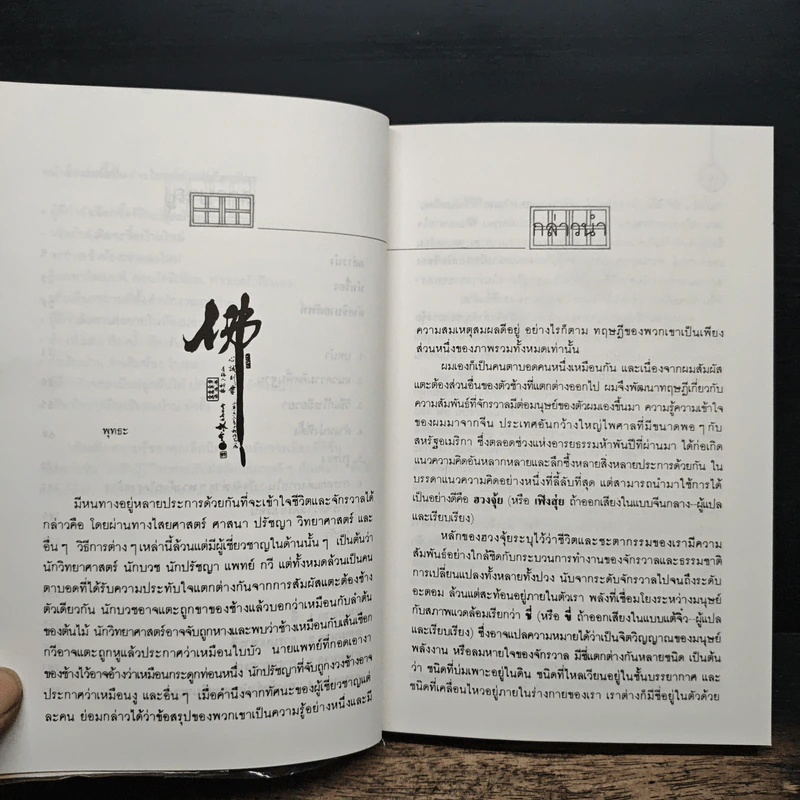 佛
พุทธะ
มีหนทางอยู่หลายประการด้วยกันที่จะเข้าใจชีวิตและจักรวาลได้
กล่าวคือ โดยผ่านทางไสยศาสตร์ ศาสนา ปรัชญา วิทยาศาสตร์ และ
อื่นๆ วิธีการต่างๆเหล่านี้ล้วนแต่มีผู้เชี่ยวชาญในด้านนั้นๆ เป็นต้นว่า
นักวิทยาศาสตร์ นักบวช นักปรัชญา แพทย์ กวี แต่ทั้งหมดล้วนเป็นคน
ตาบอดที่ได้รับความประทับใจแตกต่างกันจากการสัมผัสแตะต้องช้าง
ตัวเดียวกัน นักบวชอาจแตะถูกขาของช้างแล้วบอกว่าเหมือนกับลำต้น
ของต้นไม้ นักวิทยาศาสตร์อาจจับถูกหางและพบว่าช้างเหมือนกับเส้นเชือก
กวีอาจแตะถูกหูแล้วประกาศว่าเหมือนใบบัว นายแพทย์ที่กอดเอางา
ของช้างไว้อาจอ้างว่าเหมือนกระดูกท่อนหนึ่ง นักปรัชญาที่จับถูกงวงช้างอาจ
ประกาศว่าเหมือนงู และอื่นๆ เมื่อคำนึงจากทัศนะของผู้เชี่ยวชาญแต่
ละคน ย่อมกล่าวได้ว่าข้อสรุปของพวกเขาเป็นความรู้อย่างหนึ่งและมี
กล่าวนำ
ความสมเหตุสมผลดีอยู่ อย่างไรก็ตาม ทฤษฎีของพวกเขาเป็นเพียง
ส่วนหนึ่งของภาพรวมทั้งหมดเท่านั้น
ผมเองก็เป็นคนตาบอดคนหนึ่งเหมือนกัน และเนื่องจากผมสัมผัส
แตะต้องส่วนอื่นของตัวช้างที่แตกต่างออกไป ผมจึงพัฒนาทฤษฎีเกี่ยวกับ
ความสัมพันธ์ที่จักรวาลมีต่อมนุษย์ของตัวผมเองขึ้นมา ความรู้ความเข้าใจ
ของผมมาจากจีน ประเทศอันกว้างใหญ่ไพศาลที่มีขนาดพอๆกับ
สหรัฐอเมริกา ซึ่งตลอดช่วงแห่งอารยธรรมห้าพันปีที่ผ่านมา ได้ก่อเกิด
แนวความคิดอันหลากหลายและลึกซึ้งหลายสิ่งหลายประการด้วยกัน ใน
บรรดาแนวความคิดอย่างหนึ่งที่ลี้ลับที่สุด แต่สามารถนำมาใช้การได้
เป็นอย่างดีคือ ฮวงจุ้ย (หรือ เฟิงสุ่ย ถ้าออกเสียงในแบบจีนกลาง–ผู้แปล
และเรียบเรียง)
หลักของฮวงจุ้ยระบุไว้ว่าชีวิตและชะตากรรมของเรามีความ
สัมพันธ์อย่างใกล้ชิดกับกระบวนการทำงานของจักรวาลและธรรมชาติ
การเปลี่ยนแปลงทั้งหลายทั้งปวง นับจากระดับจักรวาลไปจนถึงระดับ
อะตอม ล้วนแต่สะท้อนอยู่ภายในตัวเรา พลังที่เชื่อมโยงระหว่างมนุษย์
กับสภาพแวดล้อมเรียกว่า ชี่ (หรือ ขี่ ถ้าออกเสียงในแบบแต้จิ๋ว–ผู้แปล
และเรียบเรียง) ซึ่งอาจแปลความหมายได้ว่าเป็นจิตวิญญาณของมนุษย์
พลังงาน หรือลมหายใจของจักรวาล มีชี่แตกต่างกันหลายชนิด เป็นต้น
ว่า ชนิดที่บ่มเพาะอยู่ในดิน ชนิดที่ไหลเวียนอยู่ในชั้นบรรยากาศ และ
ชนิดที่เคลื่อนไหวอยู่ภายในร่างกายของเรา เราต่างก็มีชี่อยู่ในตัวด้วย